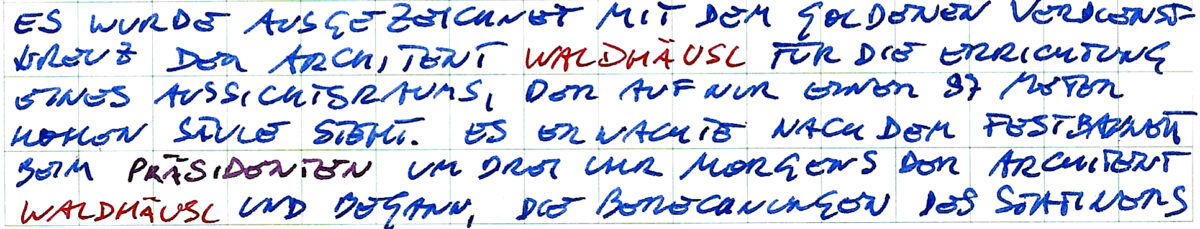 ES WURDE AUSGEZEICHNET MIT DEM GOLDENEN VERDIENST-
KREUZ DER ARCHITEKT WALDHÄUSL FÜR DIE ERRICHTUNG
EINES AUSSICHTSRAUMS, DER AUF NUR EINER 87 METER
HOHEN SÄULE STEHT. ES ERWACHTE NACH DEM FESTBANKETT
BEIM PRÄSIDENTEN UM DREI UHR MORGENS DER ARCHITEKT
WALDHÄUSL UND BEGANN, DIE BERECHNUNGEN DES STATIKERS